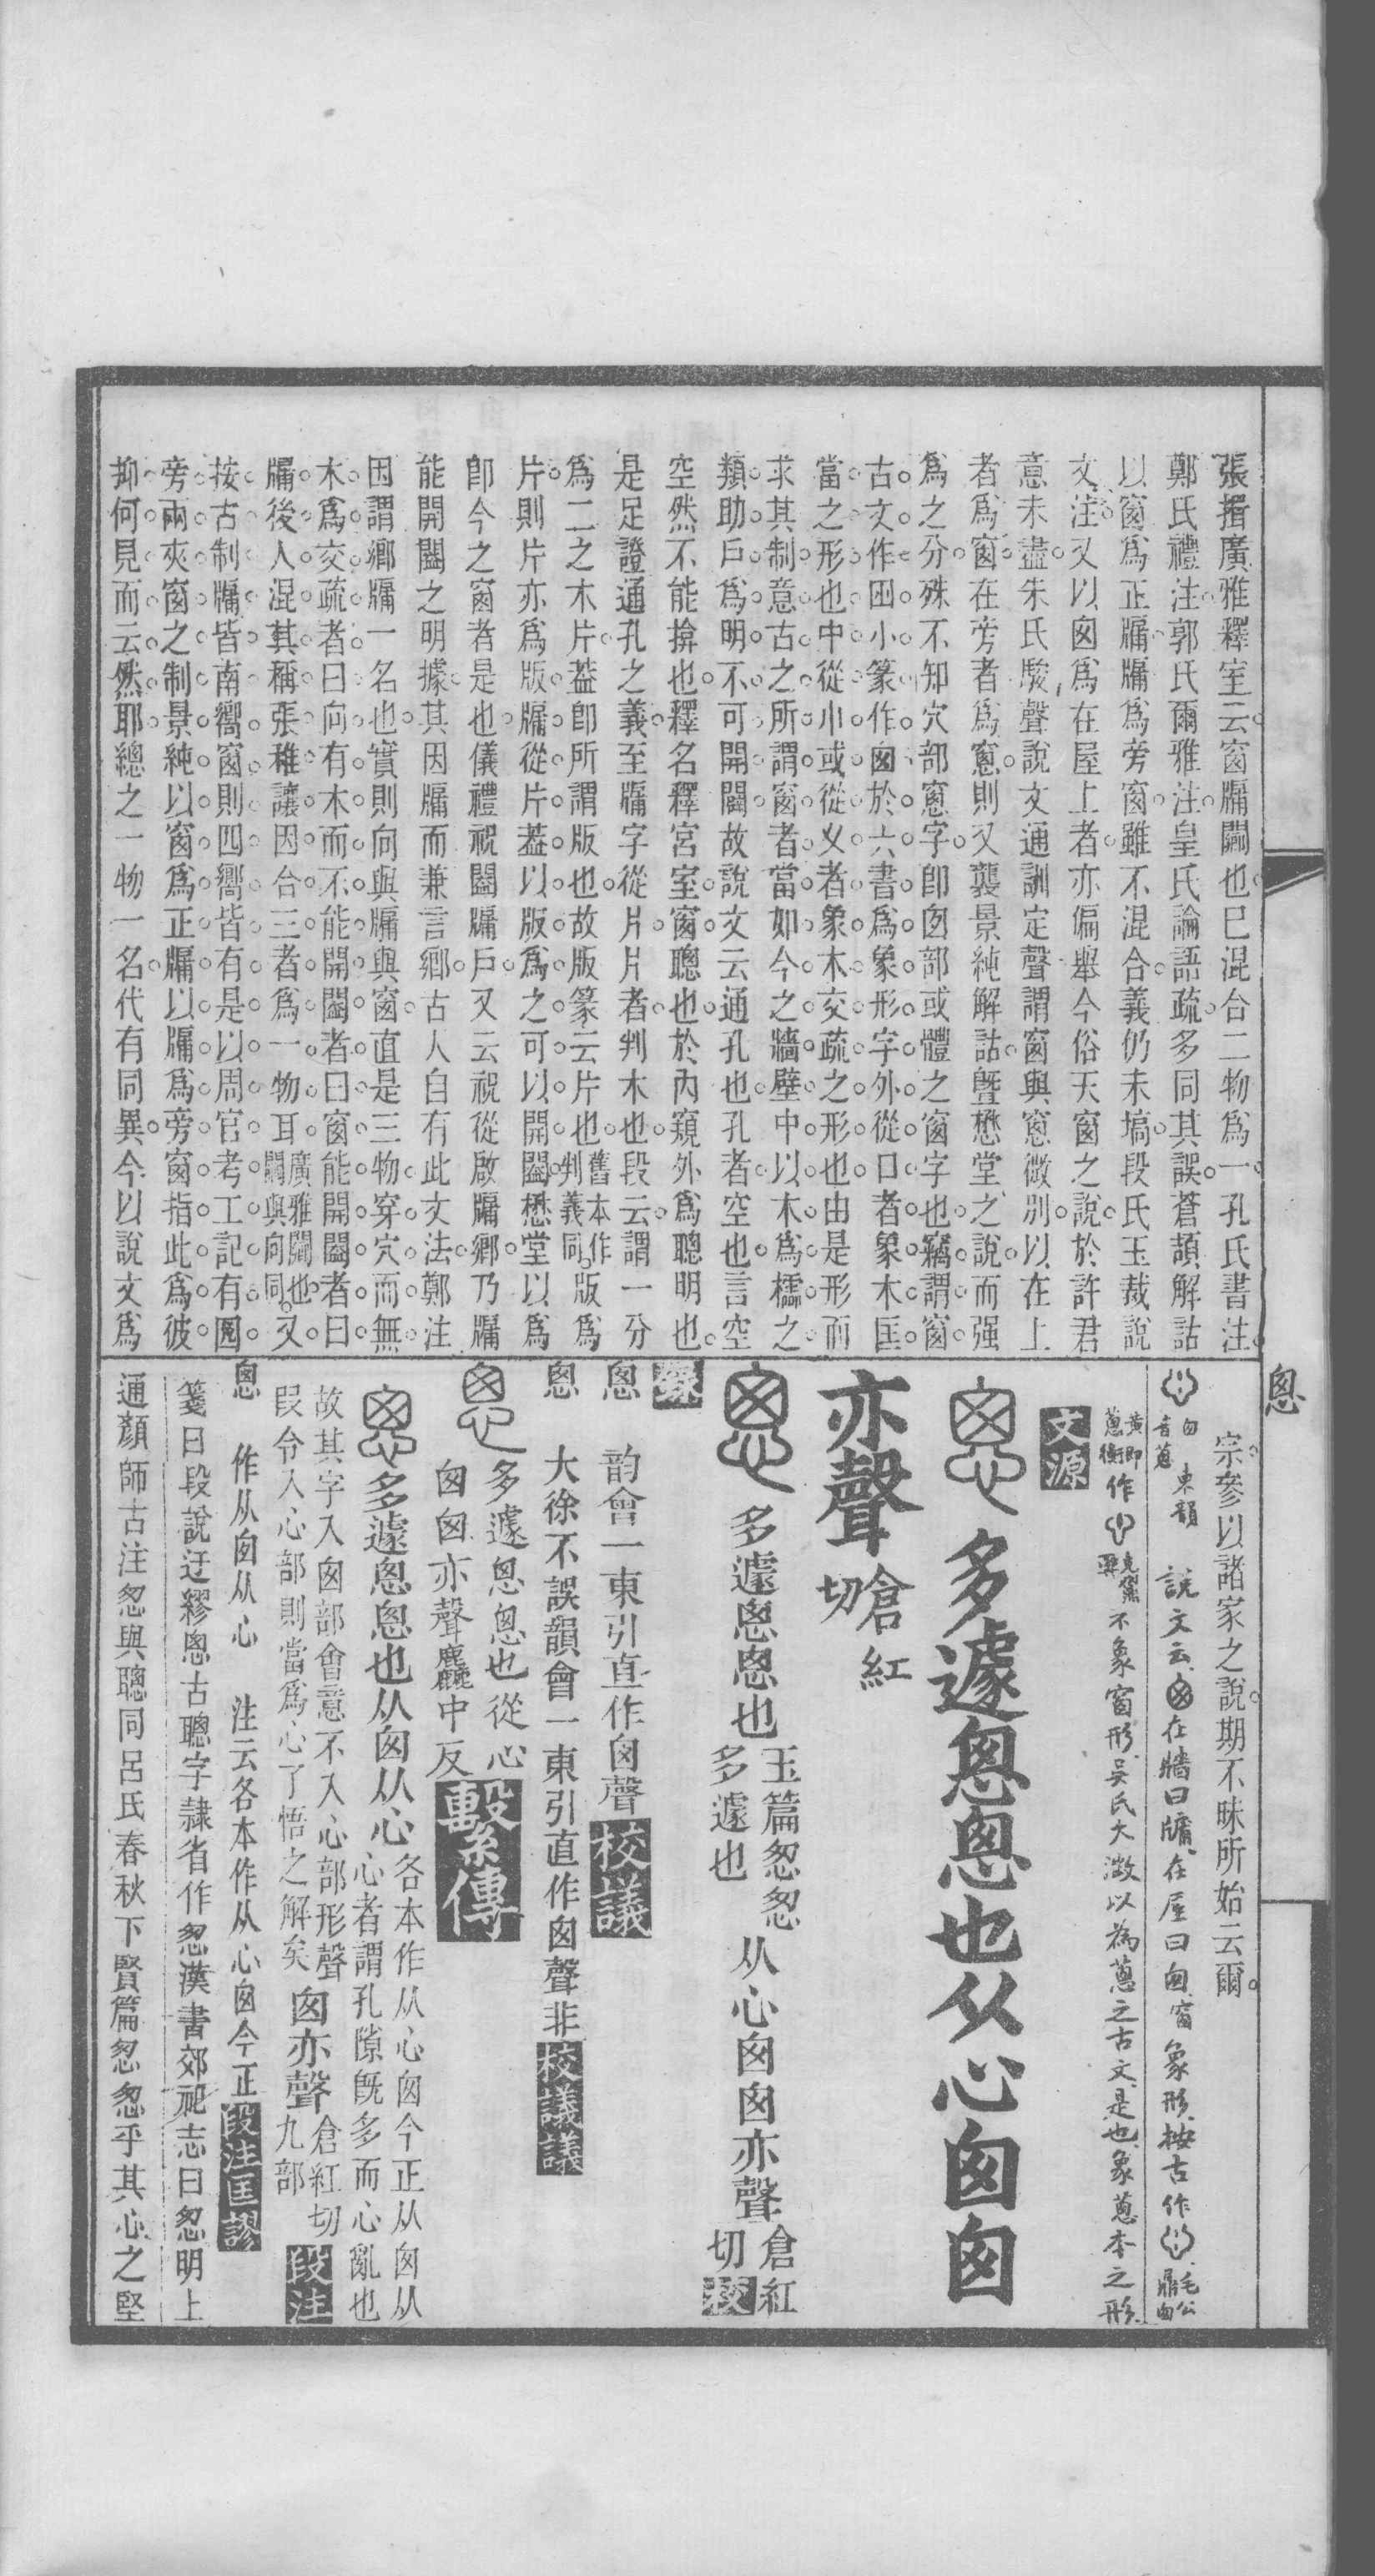 張揖廣雅釋室云窗牖闢也已混合二物爲一孔氏書注
鄭氏禮注郭氏爾雅注皇氏論語疏多同其誤蒼頡解詁
以窗爲正牖牖爲旁窗雖不混合義仍未塙段氏玉裁說
文注又以囪爲在屋上者亦偏舉今俗天窗之說於許君
意未盡朱氏駿聲說文通訓定聲謂窗與窻微別以在上
者爲窗在旁者爲窻則又襲景純解詁曁懋堂之說而强
爲之分殊不知穴部窻字卽囪部或體之窗字也竊謂窗
古文作囧小篆作囪於六書爲象形字外從口者象木匡
當之形也中從小或從乂者象木交疏之形也由是形而
求其制意古之所謂窗者當如今之牆壁中以木爲櫺之
類助戶爲明不可開闔故說文云通孔也孔者空也言空
空然不能揜也釋名釋宮室窗聰也於內窺外爲聰明也
是足證通孔之義至牖字從片片者判木也段云謂一分
爲二之木片葢卽所謂版也故版篆云片也舊本作判義同版爲
片則片亦爲版牖從片葢以版爲之可以開闔懋堂以爲
卽今之窗者是也儀禮祝闔牖戶又云祝從啟牖鄉乃牖
能開闔之明據其因牖而兼言鄉古人自有此文法鄭注
因謂鄉牖一名也實則向與牖與窗直是三物穿穴而無
木爲交疏者曰向有木而不能開闔者曰窗能開闔者曰
牖後人混其稱張稚讓因合三者爲一物耳廣雅闢也闢與向同又
按古制牖皆南嚮窗則四嚮皆有是以周官考工記有
旁兩夾窗之制景純以窗爲正牖以牖爲旁窗指此爲彼
抑何見而云然耶總之一物一名代有同異今以說文爲
悤
宗參以諸家之說期不昧所始云爾
囪音蔥東韻 說文云在牆曰牖在屋曰囪窗象形按古作毛公鼎囪
黃卽蔥衡作克鼎不象窗形吳氏大澂以為蔥之古文是也象蔥本之形
文源
多遽悤悤也从心囪囪
亦聲倉紅切
多遽悤悤也玉篇怱怱多遽也从心囪囪亦聲倉紅切校
錄
悤 韵會一東引直作囪聲校議
悤 大徐不誤韻會一東引直作囪聲非校議議
多遽悤悤也從心
囪囪亦聲麤中反繫傳
多遽悤悤也从囪从心各本作从心囪今正从囪从心者謂孔隙旣多而心亂也
故其字入囪部會意不入心部形聲段令入心部則當爲心了悟之解矣囪亦聲倉紅切九部段注
悤 作从囪从心 注云各本作从心囪今正段注匡謬
箋曰段說迂繆悤古聰字隷省作怱漢書郊祀志曰怱明上
通顏師古注怱與聰同呂氏春秋下賢篇怱怱乎其心之堅